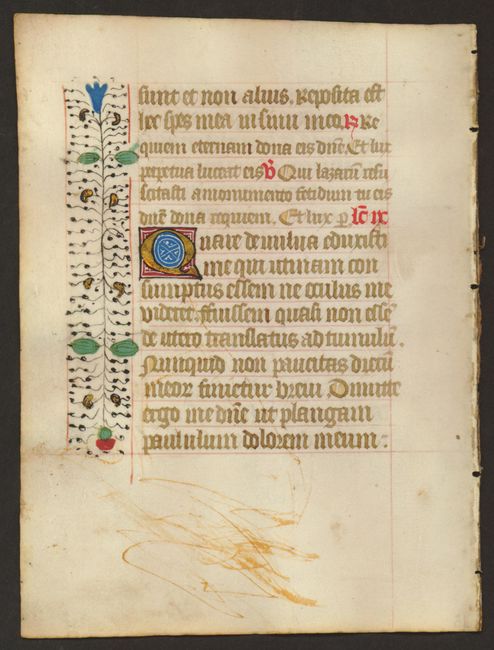 sunt et non alius. Reposita est
hec spes mea in sinu meo. R Re
quiem eternam dona eis dñe. Et lux
perpetua luceat eis. V Qui lazarum resu
scitasti a monumento fetidum tu eis
dñe dona requiem. Et lux p lc̄ ix
Quare de vulva eduxisti
me qui utinam con
sumptus essem ne oculus me
videret. ffuissem quasi non essē
de utero translatus ad tumulū.
Nunquid non paucitas dierū
meor finietur brevi. Dimitte
ergo me dñe ut plangam
paululum dolorem meum: